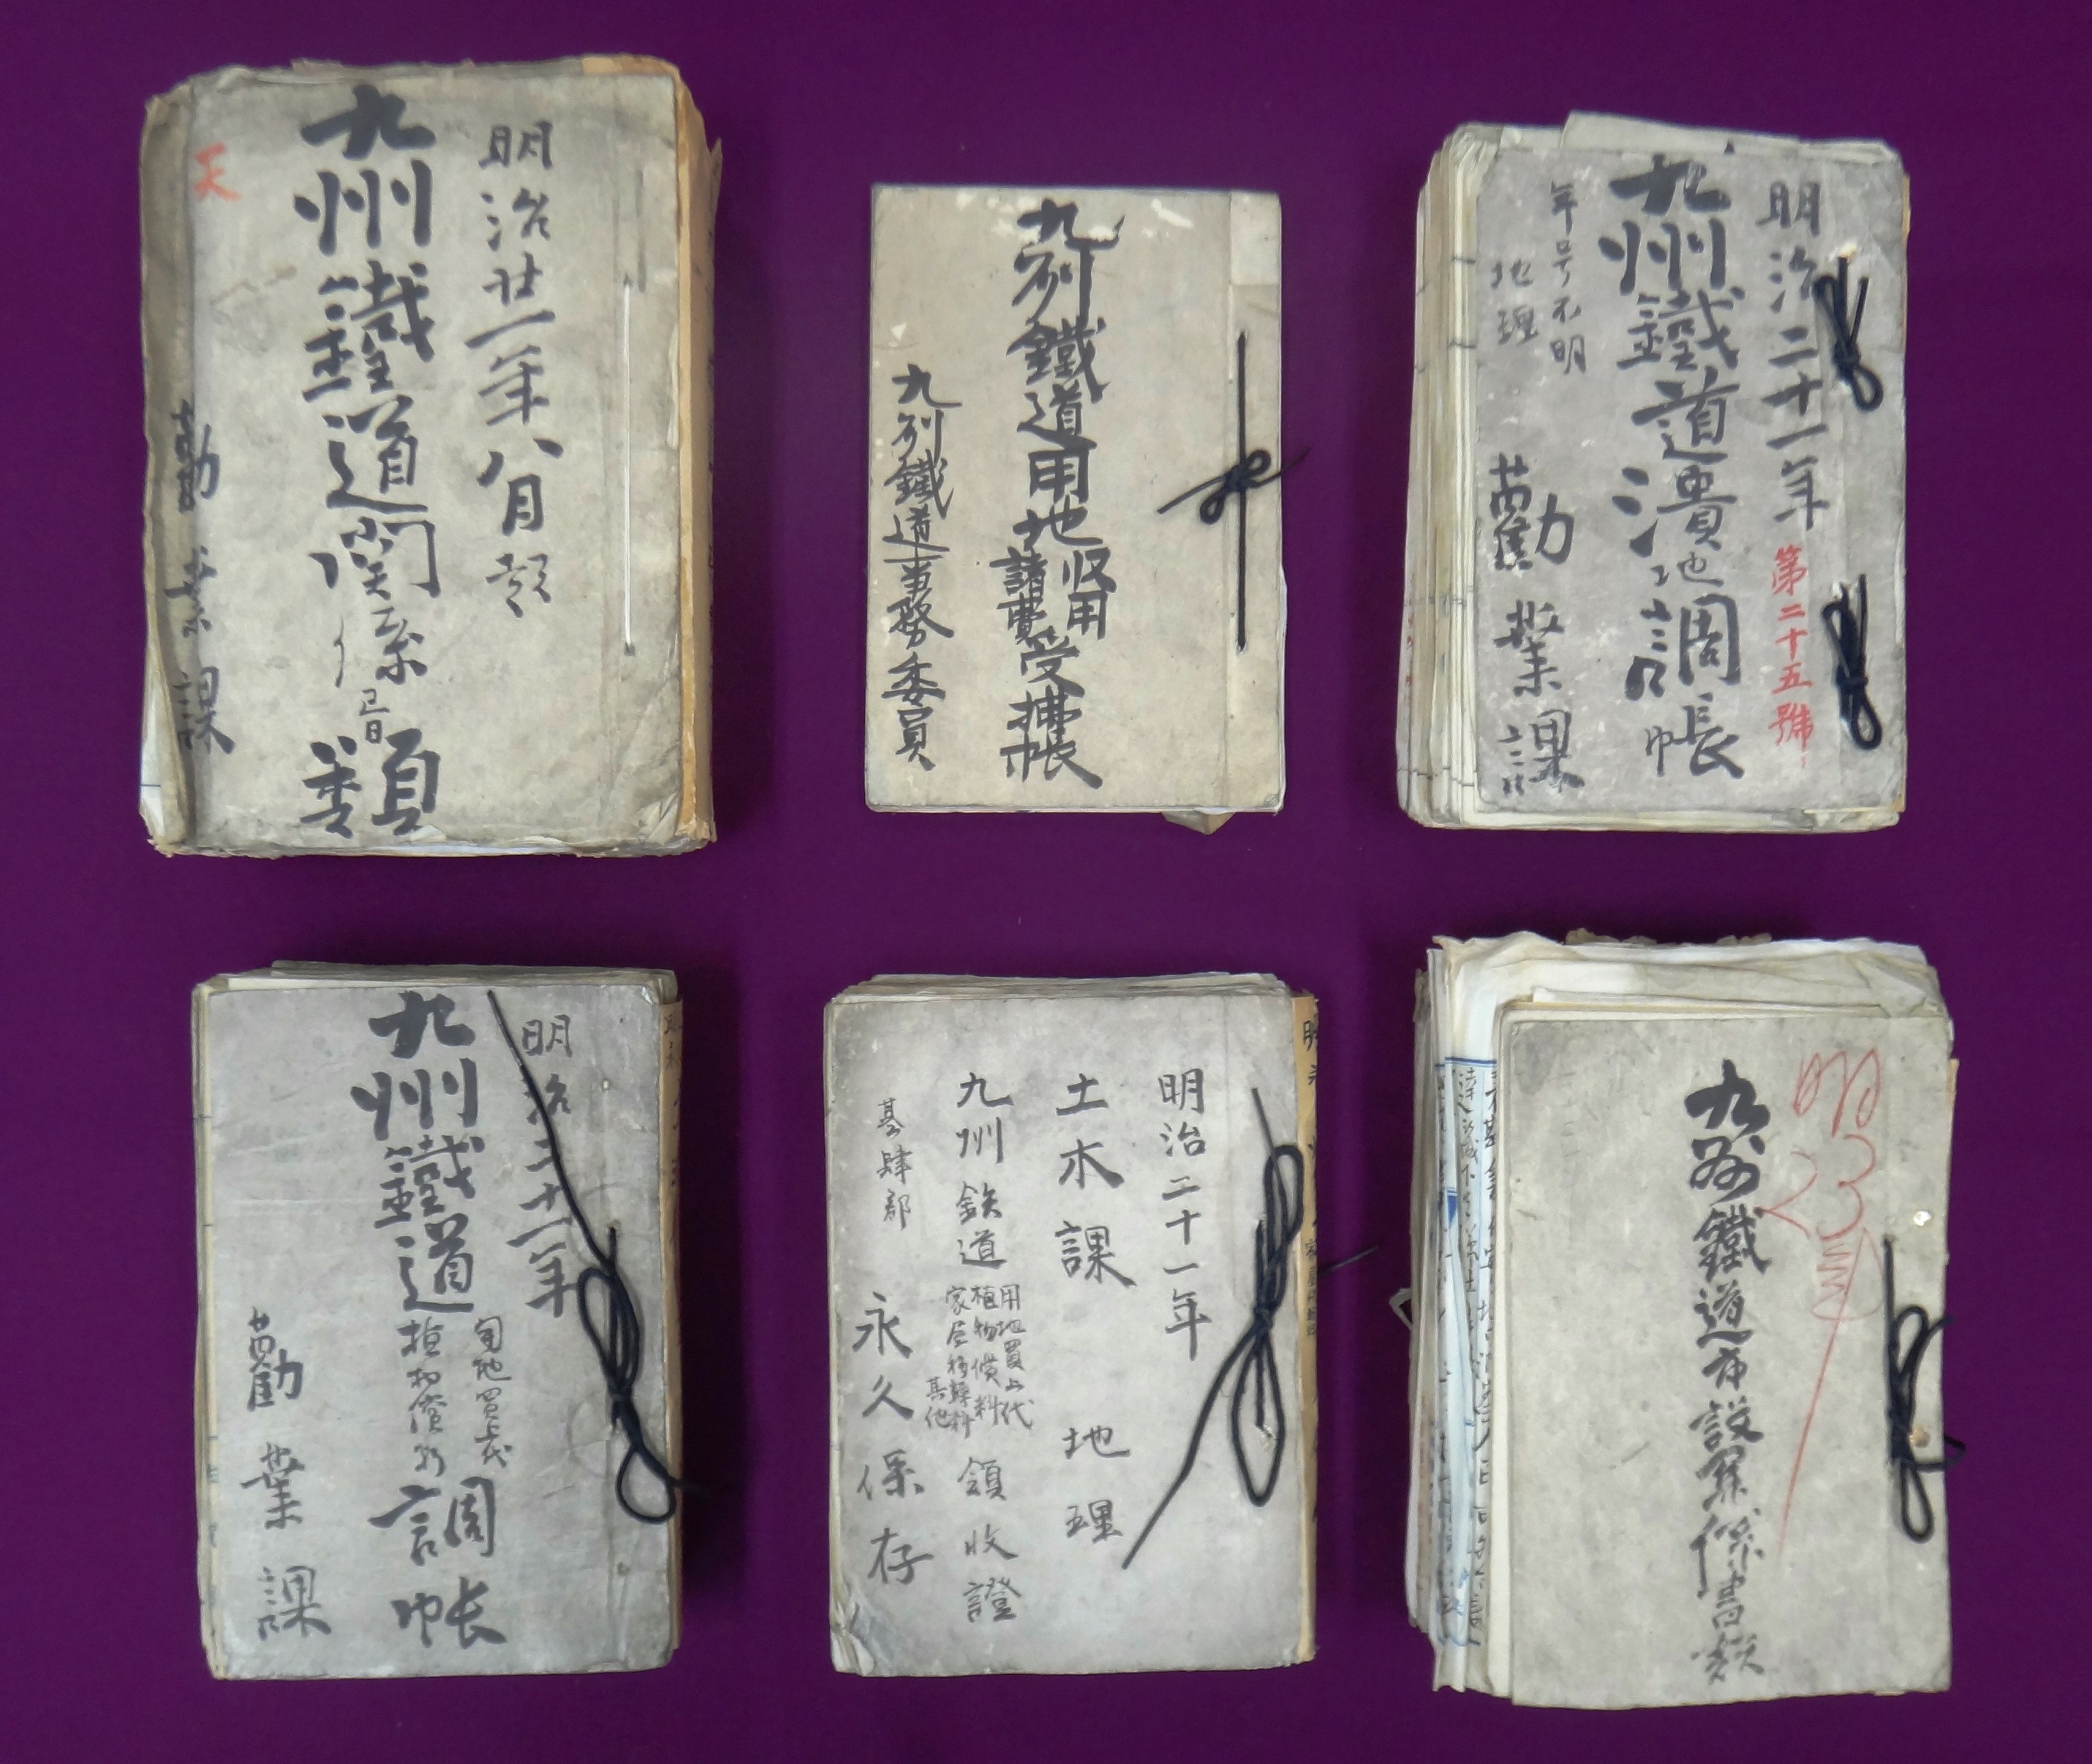 明治廿一年八月
九州鐵道関係書類
勸業課
天
九州鐵道用地
収用
諸費
受拂帳
九州鐵道事務委員
明治二十一年
第二十五號
九州鐵道潰地調帳
年号不明
地理
勸業課
明治二十一年
九州鐵道
調帳
勸業課
明治二十一年
土木課
地理
九州鉄道
用地買上代
植物償料
家屋移轉料
其他
領收證
基肄郡
永久保存
明23
九州鐵道布設関係書類